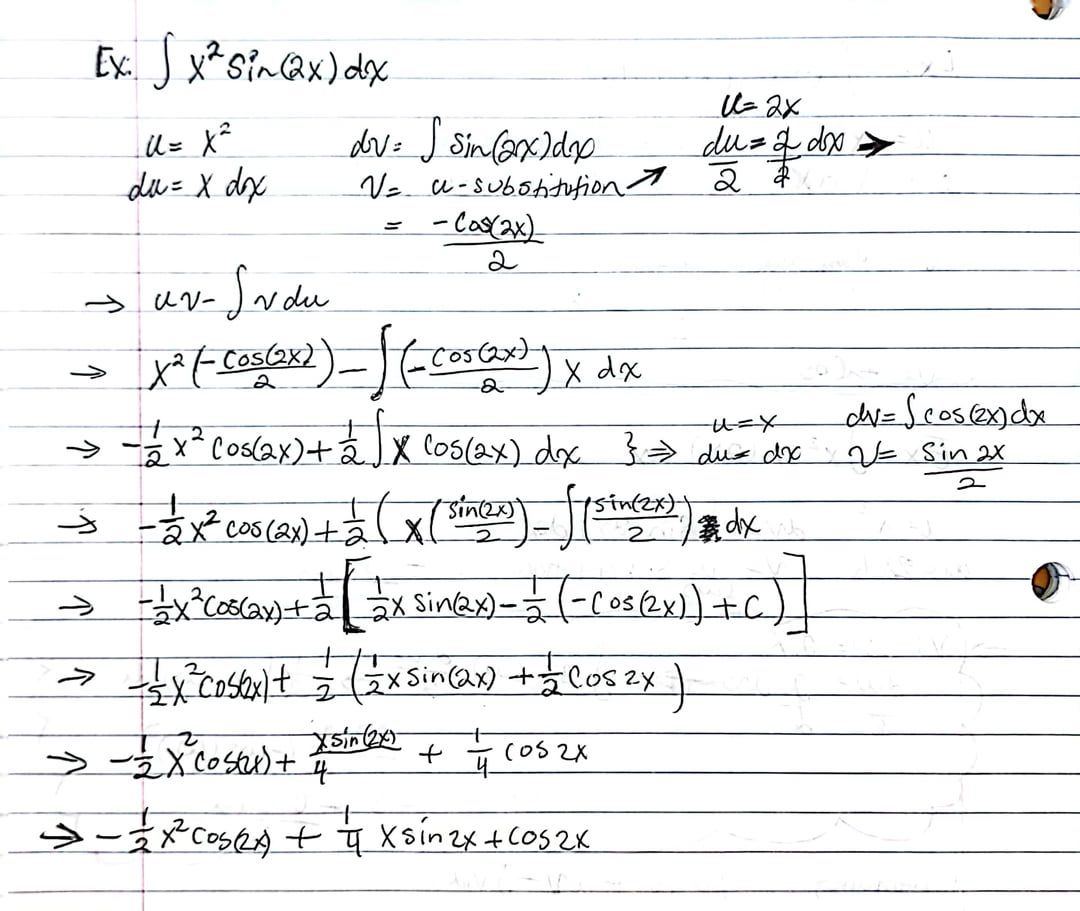 Ex: ∫ x² sin(2x) dx
u = 2x
u = x²   dv = ∫ sin(2x) dx   du/2 = 2/2 dx →
du = x dx   v = u-substitution ↗
= -cos(2x)/2
→ uv - ∫ v du
→ x² (-cos(2x)/2) - ∫ (-cos(2x)/2) x dx
→ -1/2 x² cos(2x) + 1/2 ∫ x cos(2x) dx } ⇒ u = x   dv = ∫ cos(2x) dx
du = dx   v = sin 2x/2
→ -1/2 x² cos(2x) + 1/2 ( x (sin(2x)/2) - ∫ (sin(2x)/2) dx
→ -1/2 x² cos(2x) + 1/2 [ 1/2 x sin(2x) - 1/2 (-cos(2x)) + C ) ]
→ -1/2 x² cos(2x) + 1/2 ( 1/2 x sin(2x) + 1/2 cos 2x )
→ -1/2 x² cos(2x) + x sin(2x)/4 + 1/4 cos 2x
→ -1/2 x² cos(2x) + 1/4 x sin 2x + cos 2x